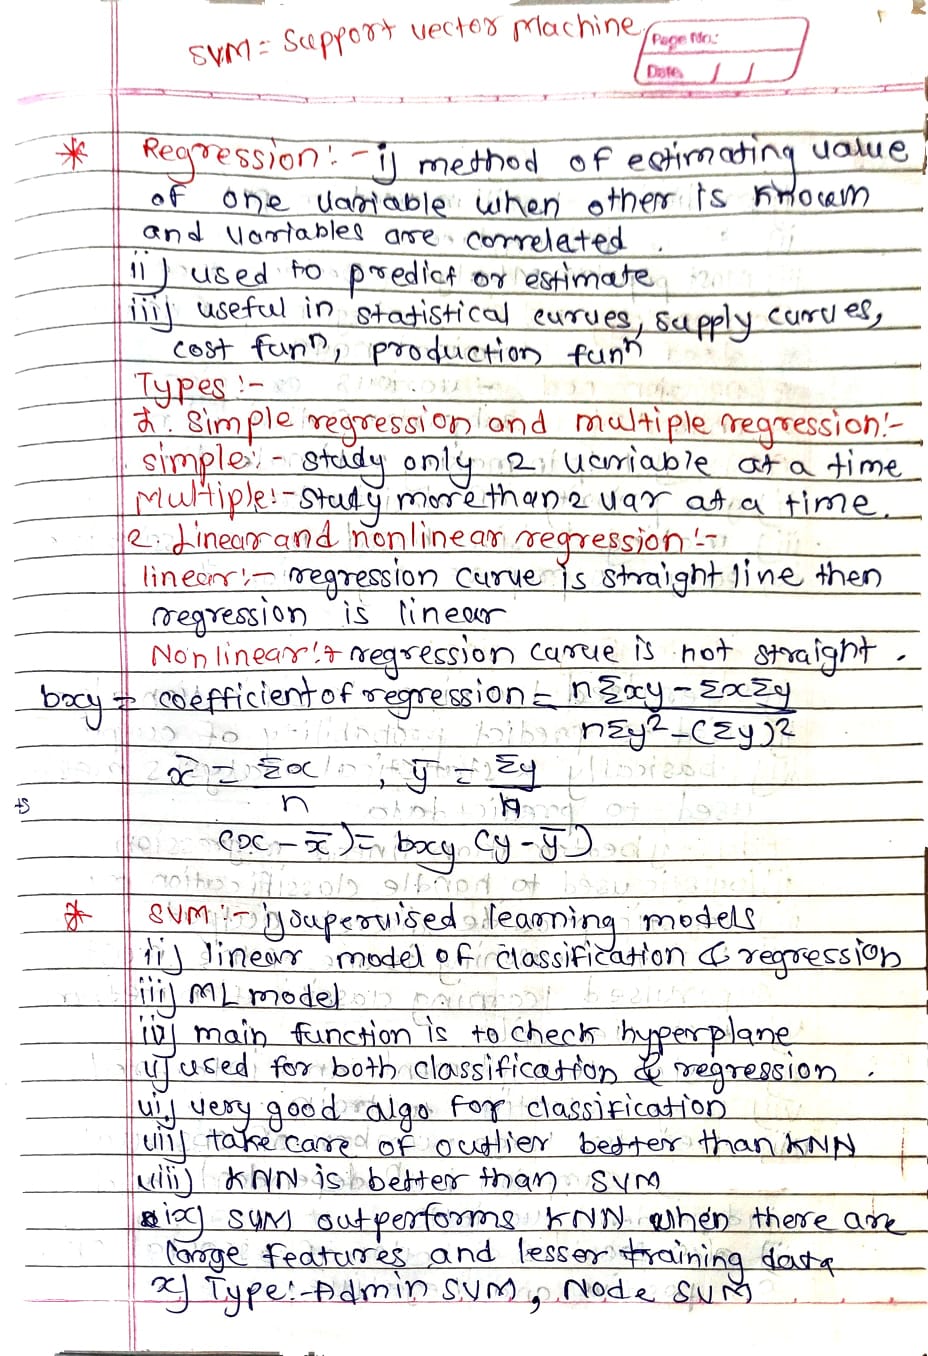 SVM = Support vector Machine
Page No.:
Date / /
* Regression :- i) method of estimating value
of one variable when other is known
and variables are correlated.
ii) used to predict or estimate
iii) useful in statistical curves, supply curves,
cost funⁿ, production funⁿ
Types :-
1. Simple regression and multiple regression:-
simple:- study only 2 variable at a time
Multiple:- study more than 2 var at a time.
2. Linear and nonlinear regression :-
linear:- regression curve is straight line then
regression is linear
Non linear:- regression curve is not straight.
bxy = coefficient of regression = nΣxy - ΣxΣy
nΣy² - (Σy)²
x̄ = Σx , ȳ = Σy
n n
(x - x̄) = bxy (y - ȳ)
* SVM :- i) supervised learning models
ii) linear model of classification & regression
iii) ML model
iv) main function is to check hyperplane
v) used for both classification & regression.
vi) very good algo for classification
vii) take care of outlier better than KNN
viii) KNN is better than SVM
ix) SVM outperforms KNN when there are
large features and lesser training data
x) Type:- Admin SVM, Node SVM